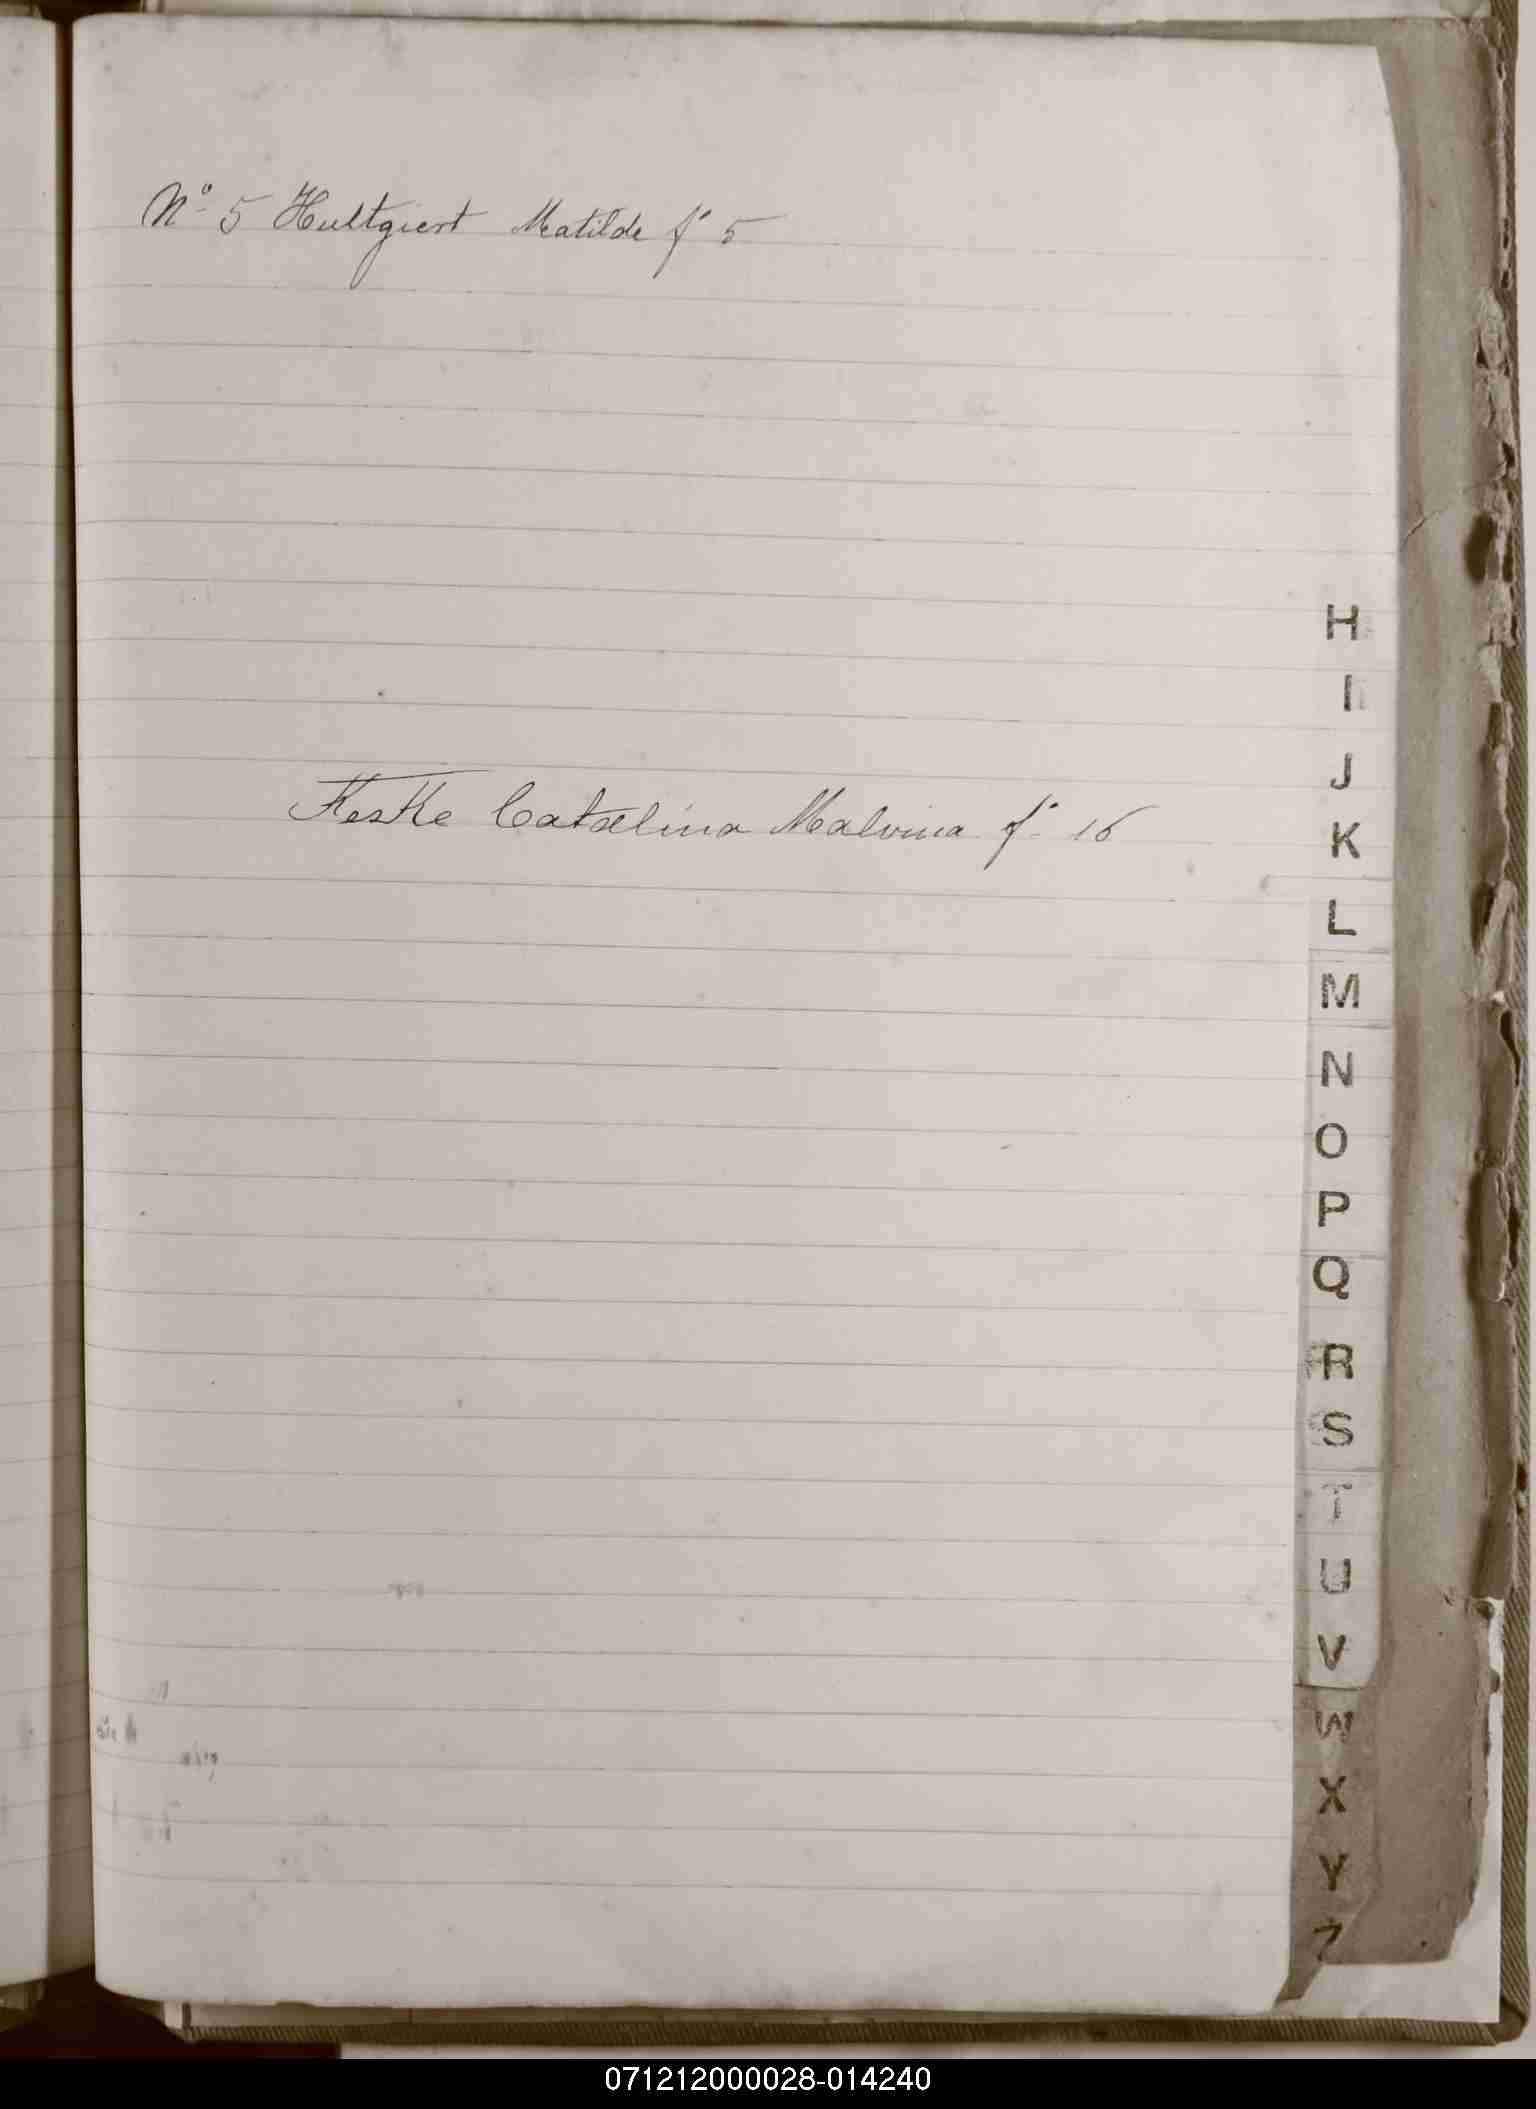 Nº 5 Hultgiert Matilde fº 5
Keske Catalina Malvina fº 16
H
I
J
K
L
M
N
O
P
Q
R
S
T
U
V
W
X
Y
Z
071212000028-014240